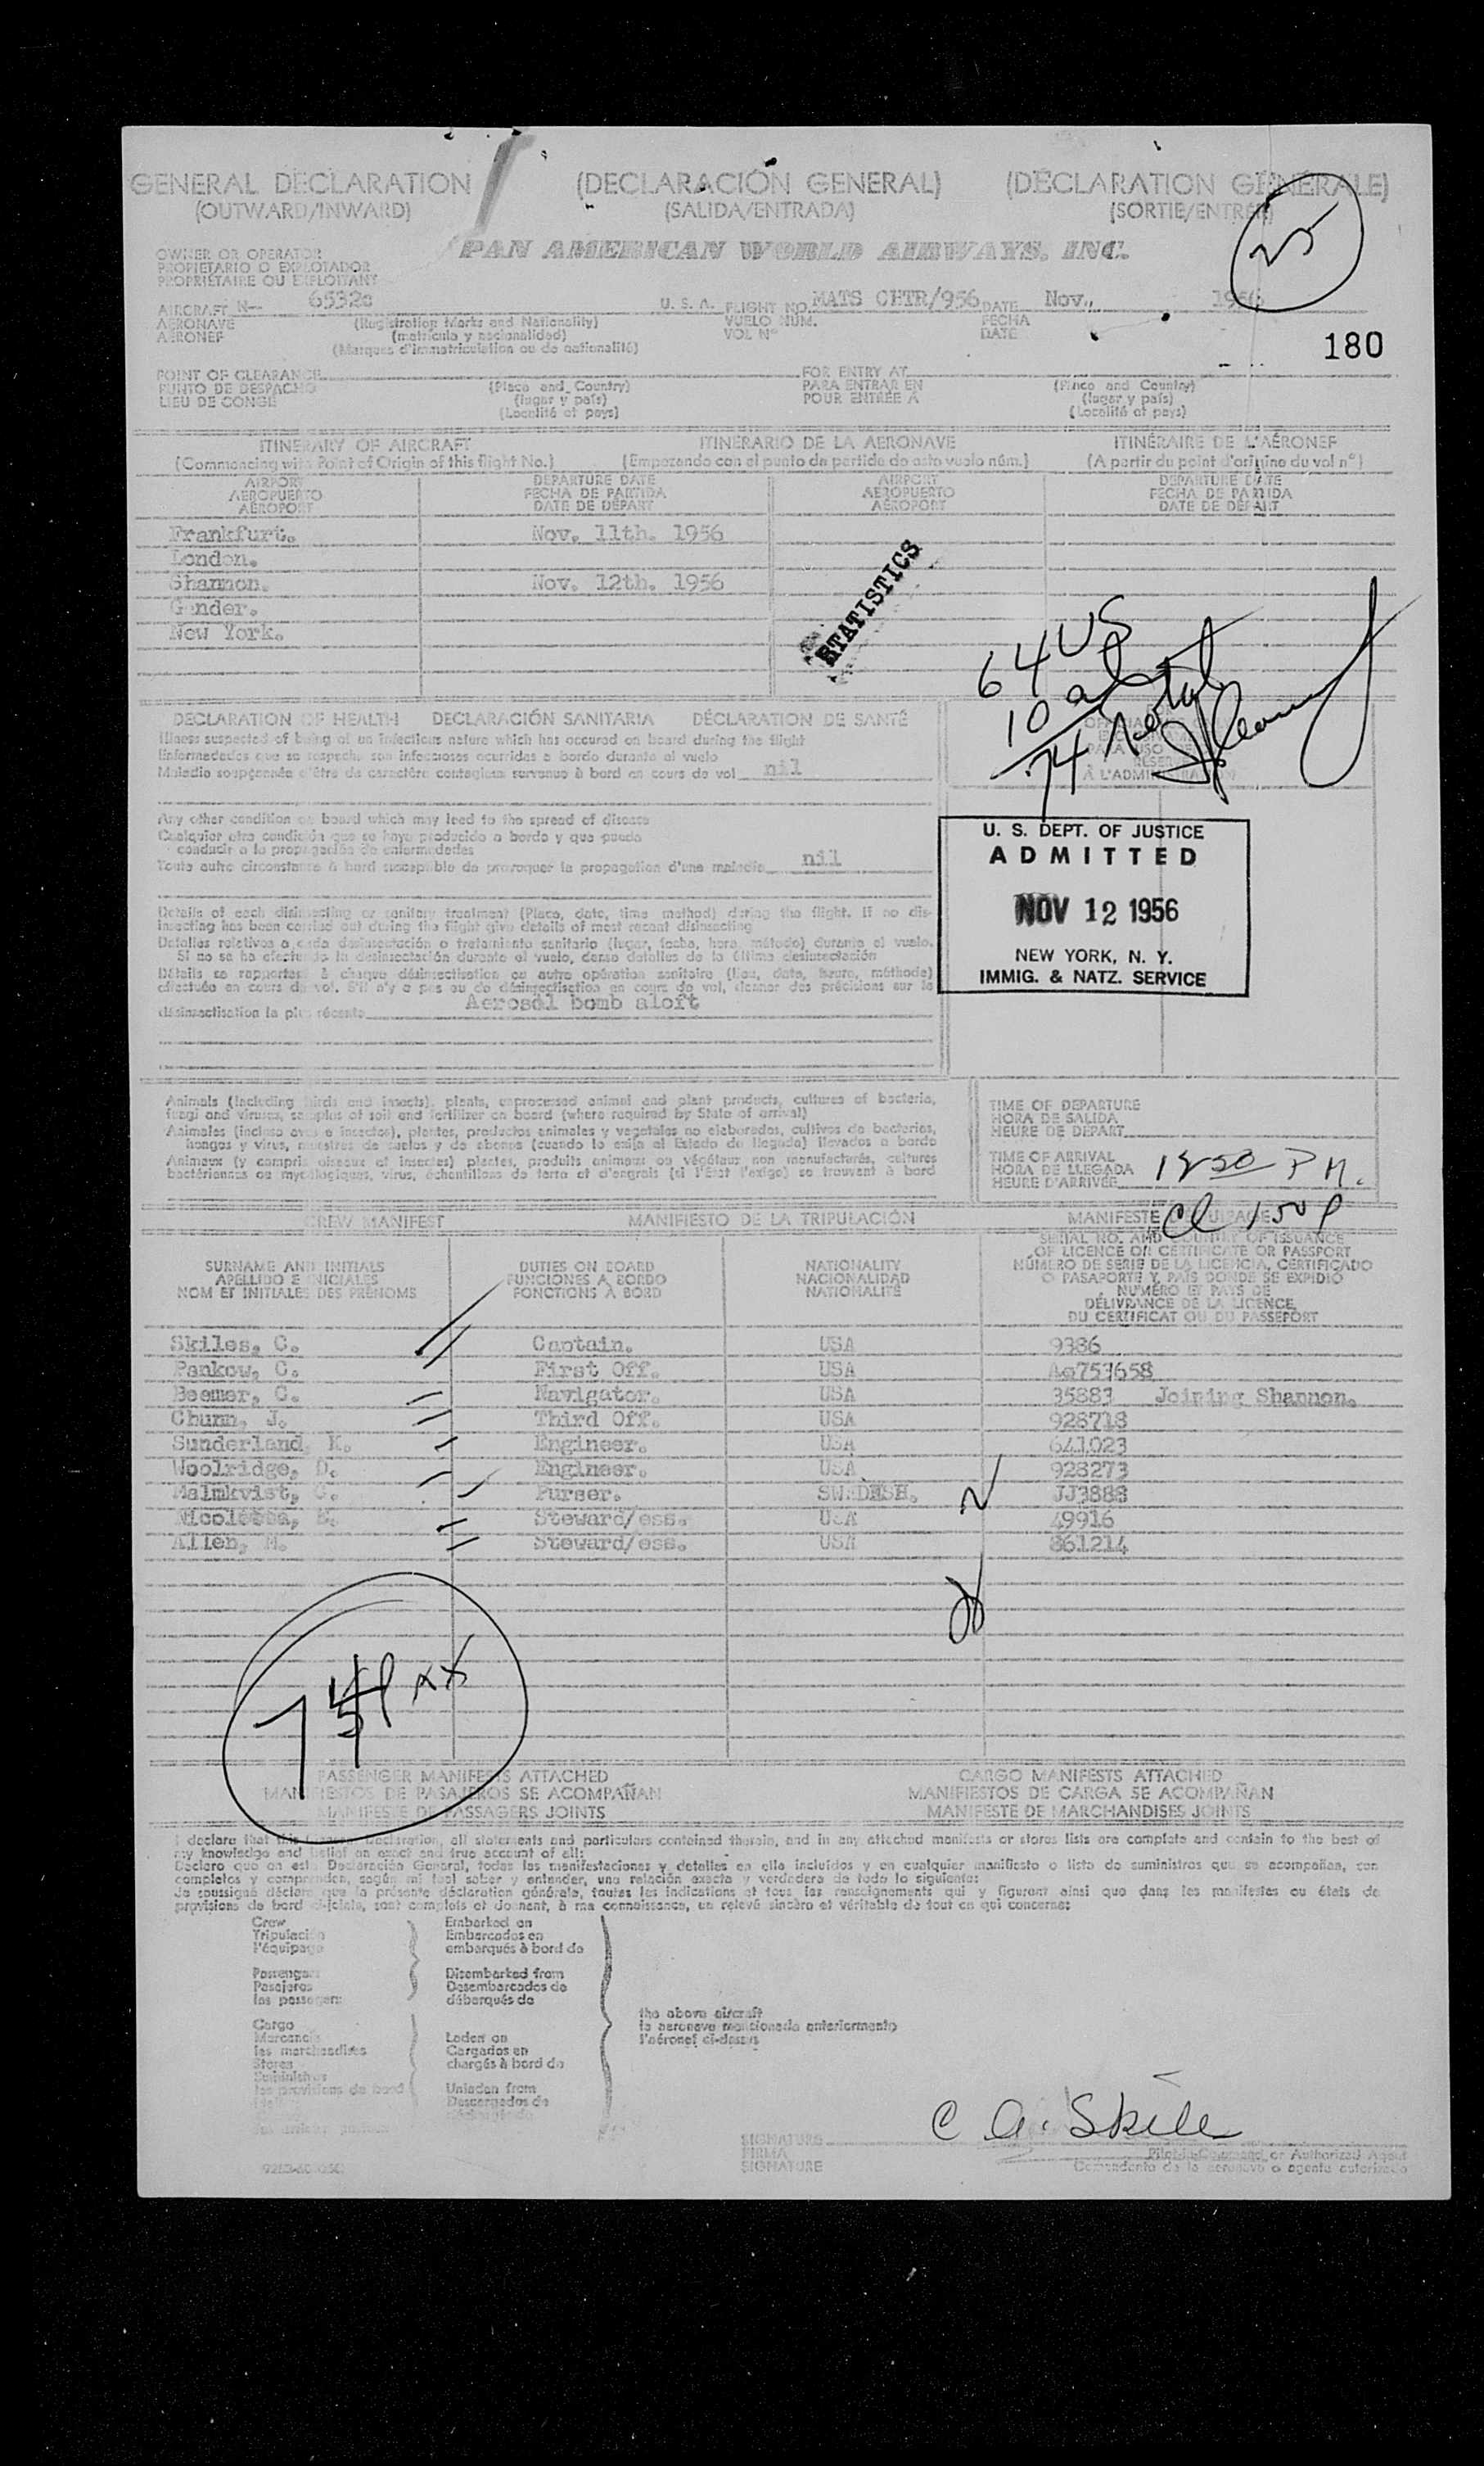 GENERAL DECLARATION (DECLARACIÓN GENERAL) (DÉCLARATION GÉNÉRALE)
(OUTWARD/INWARD) (SALIDA/ENTRADA) (SORTIE/ENTRÉE)
25
OWNER OR OPERATOR PAN AMERICAN WORLD AIRWAYS, INC.
PROPIETARIO O EXPLOTADOR
PROPRIÉTAIRE OU EXPLOITANT
AIRCRAFT N— 6532c U. S. A. FLIGHT NO. MATS CHTR/956 DATE Nov., 1956
AERONAVE (Registration Marks and Nationality) VUELO NÚM. FECHA
AÉRONEF (matrícula y nacionalidad) VOL Nº DATE
(Marques d'immatriculation ou de nationalité)
180
POINT OF CLEARANCE FOR ENTRY AT
PUNTO DE DESPACHO (Place and Country) PARA ENTRAR EN (Place and Country)
LIEU DE CONGÉ (lugar y país) POUR ENTRÉE À (lugar y país)
(Localité et pays) (Localité et pays)
ITINERARY OF AIRCRAFT ITINERARIO DE LA AERONAVE ITINÉRAIRE DE L'AÉRONEF
(Commencing with Point of Origin of this flight No.) (Empezando con el punto de partida de este vuelo núm.) (A partir du point d'origine du vol nº)
AIRPORT DEPARTURE DATE AIRPORT DEPARTURE DATE
AEROPUERTO FECHA DE PARTIDA AEROPUERTO FECHA DE PARTIDA
AÉROPORT DATE DE DÉPART AÉROPORT DATE DE DÉPART
Frankfurt. Nov. 11th. 1956
London.
Shannon. Nov. 12th. 1956
Gander.
New York.
STATISTICS
64 US
10 al
74 total
DECLARATION OF HEALTH DECLARACIÓN SANITARIA DÉCLARATION DE SANTÉ
Illness suspected of being of an infectious nature which has occured on board during the flight
Enfermedades que se sospecha son infecciosas ocurridas a bordo durante el vuelo
Maladie soupçonnée d'être de caractère contagieux survenue à bord en cours de vol nil
Any other condition on board which may lead to the spread of disease
Cualquier otra condición que se haya producido a bordo y que pueda
conducir a la propagación de enfermedades
Toute autre circonstance à bord susceptible de provoquer la propagation d'une maladie nil
U. S. DEPT. OF JUSTICE
ADMITTED
NOV 12 1956
NEW YORK, N. Y.
IMMIG. & NATZ. SERVICE
Details of each disinsecting or sanitary treatment (Place, date, time method) during the flight. If no dis-
insecting has been carried out during the flight give details of most recent disinsecting
Detalles relativos a cada desinsectación o tratamiento sanitario (lugar, fecha, hora, método) durante el vuelo.
Si no se ha efectuado la desinsectación durante el vuelo, dense detalles de la última desinsectación
Détails se rapportant à chaque désinsectisation ou autre opération sanitaire (lieu, date, heure, méthode)
effectuée en cours de vol. S'il n'y a pas eu de désinsectisation en cours de vol, donner des précisions sur la
désinsectisation la plus récente Aerosol bomb aloft
Animals (including birds and insects), plants, unprocessed animal and plant products, cultures of bacteria,
fungi and viruses, samples of soil and fertilizer on board (where required by State of arrival)
Animales (incluso aves e insectos), plantas, productos animales y vegetales no elaborados, cultivos de bacterias,
hongos y virus, muestras de suelos y de abonos (cuando lo exija el Estado de llegada) llevados a bordo
Animaux (y compris oiseaux et insectes) plantes, produits animaux ou végétaux non manufacturés, cultures
bactériennes ou mycologiques, virus, échantillons de terre et d'engrais (si l'État l'exige) se trouvant à bord
TIME OF DEPARTURE
HORA DE SALIDA
HEURE DE DÉPART
TIME OF ARRIVAL
HORA DE LLEGADA
HEURE D'ARRIVÉE P M.
CREW MANIFEST MANIFIESTO DE LA TRIPULACIÓN MANIFESTE
SURNAME AND INITIALS DUTIES ON BOARD NATIONALITY SERIAL NO. AND COUNTRY OF ISSUANCE
APELLIDO E INICIALES FUNCIONES A BORDO NACIONALIDAD OF LICENCE OR CERTIFICATE OR PASSPORT
NOM ET INITIALES DES PRÉNOMS FONCTIONS À BORD NATIONALITÉ NÚMERO DE SERIE DE LA LICENCIA, CERTIFICADO
O PASAPORTE Y PAÍS DONDE SE EXPIDIÓ
NUMÉRO ET PAYS DE
DÉLIVRANCE DE LA LICENCE,
DU CERTIFICAT OU DU PASSEPORT
Skiles, C. Captain. USA 9386
Pankow, C. First Off. USA Ao753658
Beemer, C. Navigator. USA 35883 Joining Shannon.
Chunn, J. Third Off. USA 928718
Sunderland, K. Engineer. USA 641023
Woolridge, D. Engineer. USA 928273
Malmkvist, G. Purser. SWEDISH. JJ3888
Steward/ess. USA 49916
Allen, M. Steward/ess. USA 861214
PASSENGER MANIFESTS ATTACHED CARGO MANIFESTS ATTACHED
MANIFIESTOS DE PASAJEROS SE ACOMPAÑAN MANIFIESTOS DE CARGA SE ACOMPAÑAN
MANIFESTE DE PASSAGERS JOINTS MANIFESTE DE MARCHANDISES JOINTS
I declare that this General Declaration, all statements and particulars contained therein, and in any attached manifests or stores lists are complete and contain to the best of
my knowledge and belief an exact and true account of all:
Declaro que en esta Declaración General, todas las manifestaciones y detalles en ella incluidos y en cualquier manifiesto o lista de suministros que se acompañan, son
completos y comprenden, según mi leal saber y entender, una relación exacta y verdadera de todo lo siguiente:
Je soussigné déclare que la présente déclaration générale, toutes les indications et tous les renseignements qui y figurent ainsi que dans les manifestes ou états de
provisions de bord ci-joints, sont complets et donnent, à ma connaissance, un relevé sincère et véritable de tout en qui concerne:
Crew Embarked on
Tripulación Embarcados en
l'équipage embarqués à bord de
Passengers Disembarked from
Pasajeros Desembarcados de
les passagers débarqués de
the above aircraft
la aeronave mencionada anteriormente
l'aéronef ci-dessus
Cargo
Mercancías Laden on
les marchandises Cargados en
Stores chargés à bord de
Suministros
les provisions de bord Unladen from
Descargados de
C A. Skiles
SIGNATURE Pilot-in-Command or Authorized Agent
FIRMA Comandante de la aeronave o agente autorizado
SIGNATURE